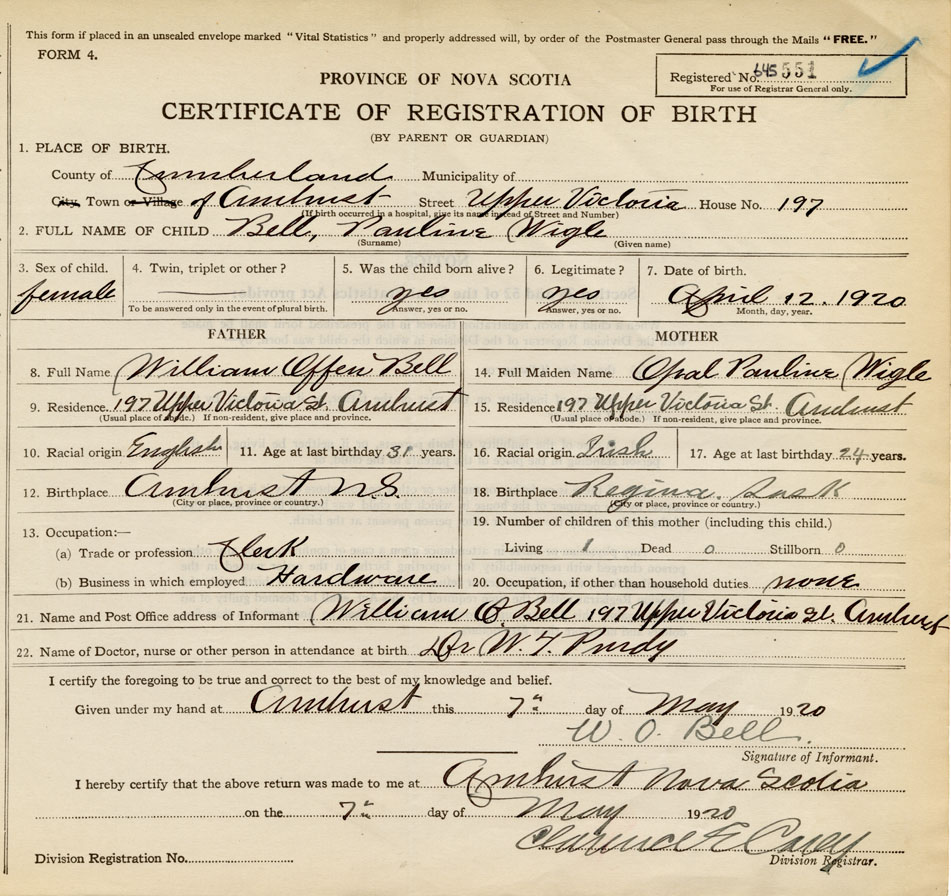 This form if placed in an unsealed envelope marked "Vital Statistics" and properly addressed will, by order of the Postmaster General pass through the Mails "FREE."
FORM 4.
PROVINCE OF NOVA SCOTIA
Registered No. 645551
For use of Registrar General only.
CERTIFICATE OF REGISTRATION OF BIRTH
(BY PARENT OR GUARDIAN)
1. PLACE OF BIRTH.
County of Cumberland Municipality of
City, Town or Village of Amherst Street Upper Victoria House No. 197
(If birth occurred in a hospital, give its name instead of Street and Number)
2. FULL NAME OF CHILD Bell, Pauline Wigle
(Surname) (Given name)
3. Sex of child. 4. Twin, triplet or other? 5. Was the child born alive? 6. Legitimate? 7. Date of birth.
female yes yes April 12. 1920
To be answered only in the event of plural birth. Answer, yes or no. Answer, yes or no. Month, day, year.
FATHER MOTHER
8. Full Name William Offen Bell 14. Full Maiden Name Opal Pauline Wigle
9. Residence. 197 Upper Victoria St. Amherst 15. Residence 197 Upper Victoria St. Amherst
(Usual place of abode.) If non-resident, give place and province. (Usual place of abode.) If non-resident, give place and province.
10. Racial origin English 11. Age at last birthday 31 years. 16. Racial origin Irish 17. Age at last birthday 24 years.
12. Birthplace Amherst N.S. 18. Birthplace Regina. Sask
(City or place, province or country.) (City or place, province or country.)
13. Occupation:— 19. Number of children of this mother (including this child.)
(a) Trade or profession Clerk Living 1 Dead 0 Stillborn 0
(b) Business in which employed Hardware 20. Occupation, if other than household duties. none
21. Name and Post Office address of Informant William O Bell 197 Upper Victoria St. Amherst
22. Name of Doctor, nurse or other person in attendance at birth Dr W. T. Purdy
I certify the foregoing to be true and correct to the best of my knowledge and belief.
Given under my hand at Amherst this 7th day of May 1920
W. O. Bell.
Signature of Informant.
I hereby certify that the above return was made to me at Amherst Nova Scotia
on the 7th day of May 1920
Clarence E Casey
Division Registration No. Division Registrar.